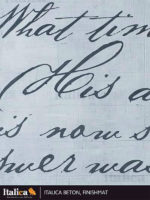 What tim
(His a
is now s
swer was
Italica
ITALICA BETON, FINISHMAT